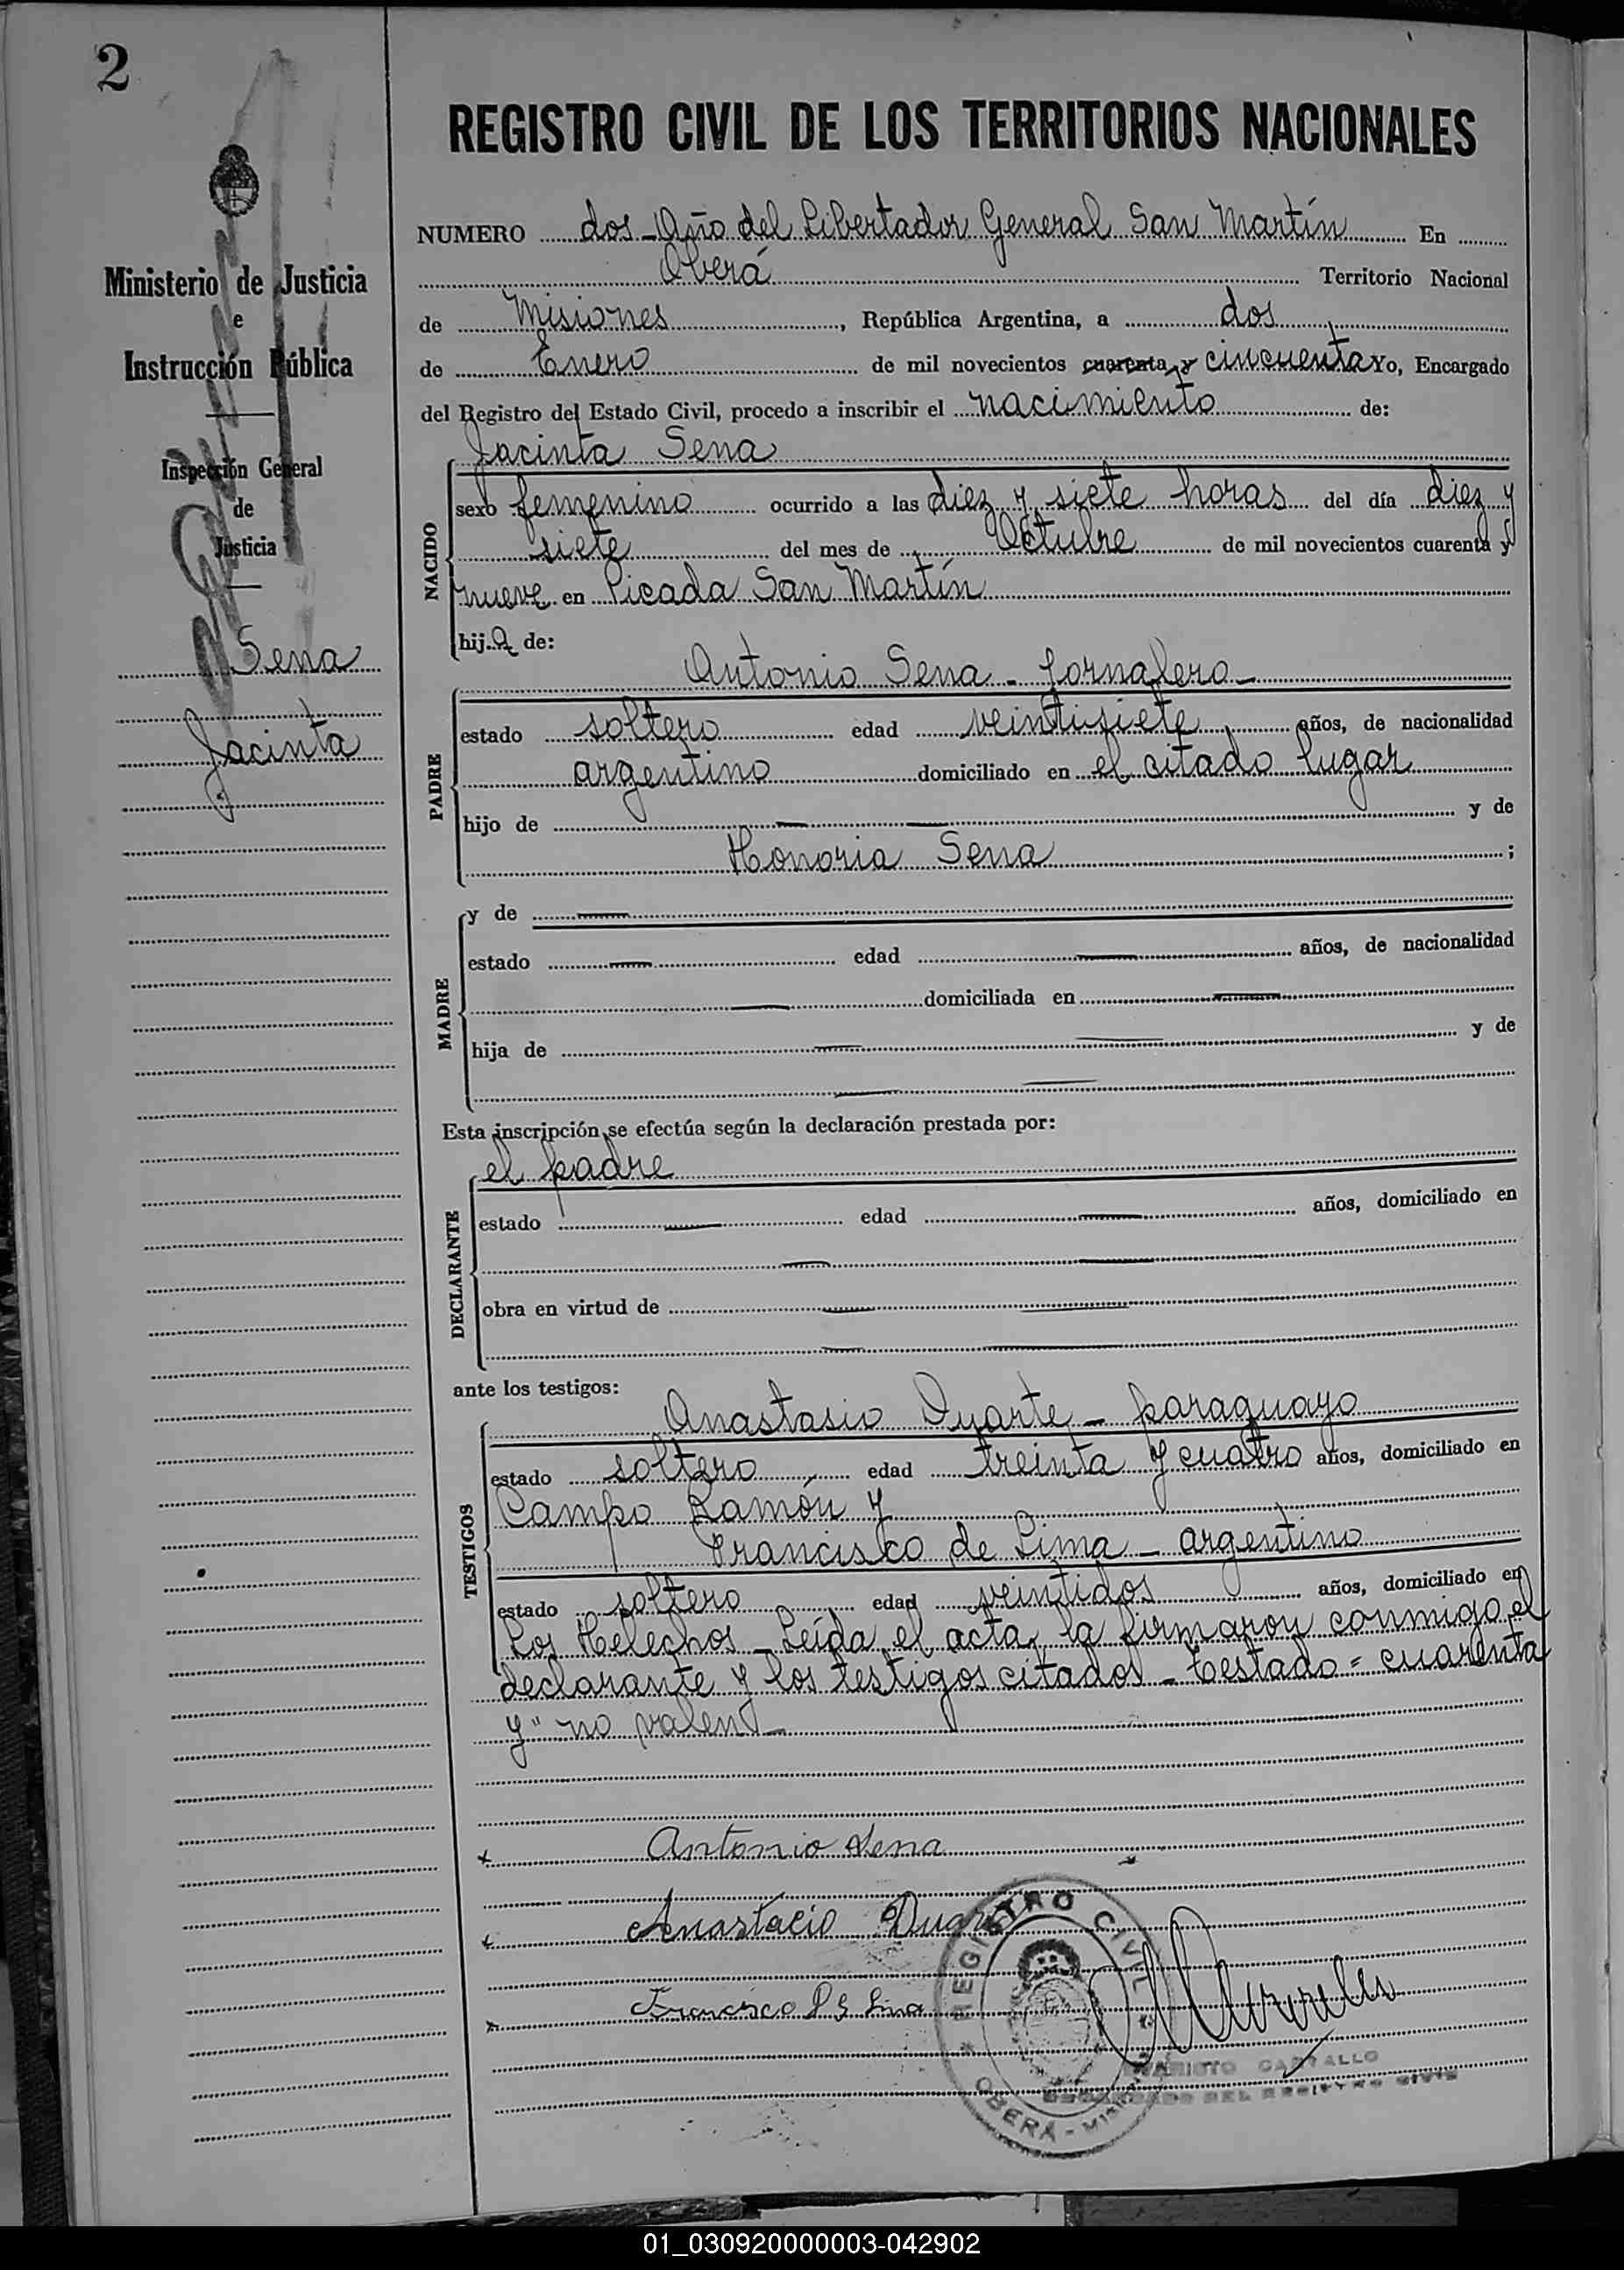 2
REGISTRO CIVIL DE LOS TERRITORIOS NACIONALES
Ministerio de Justicia
e
Instrucción Pública
Inspección General
de
Justicia
Sena
Jacinta
NUMERO dos - Año del Libertador General San Martín En
Oberá Territorio Nacional
de Misiones, República Argentina, a dos
de Enero de mil novecientos cuarenta y cincuenta Yo, Encargado
del Registro del Estado Civil, procedo a inscribir el nacimiento de:
Jacinta Sena
NACIDO
sexo femenino ocurrido a las diez y siete horas del día diez y
siete del mes de Octubre de mil novecientos cuarenta y
nueve en Picada San Martín
hija de:
Antonio Sena - Jornalero -
PADRE
estado soltero edad veintisiete años, de nacionalidad
argentino domiciliado en el citado lugar
hijo de — — y de
Honoria Sena ;
MADRE
y de —
estado — edad — años, de nacionalidad
— domiciliada en —
hija de — — y de
— —
Esta inscripción se efectúa según la declaración prestada por:
el padre
DECLARANTE
estado — edad — años, domiciliado en
— —
obra en virtud de — —
— —
ante los testigos:
Anastasio Duarte - paraguayo
TESTIGOS
estado soltero edad treinta y cuatro años, domiciliado en
Campo Ramón y
Francisco de Lima - argentino
estado soltero edad veintidos años, domiciliado en
Los Helechos - Leída el acta, la firmaron conmigo el
declarante y los testigos citados - Testado = cuarenta
y" no valen -
Antonio Sena
Anastacio Duarte
Francisco D E Lima
REGISTRO CIVIL
OBERÁ - MISIONES
ENCARGADO DEL REGISTRO CIVIL
01_030920000003-042902